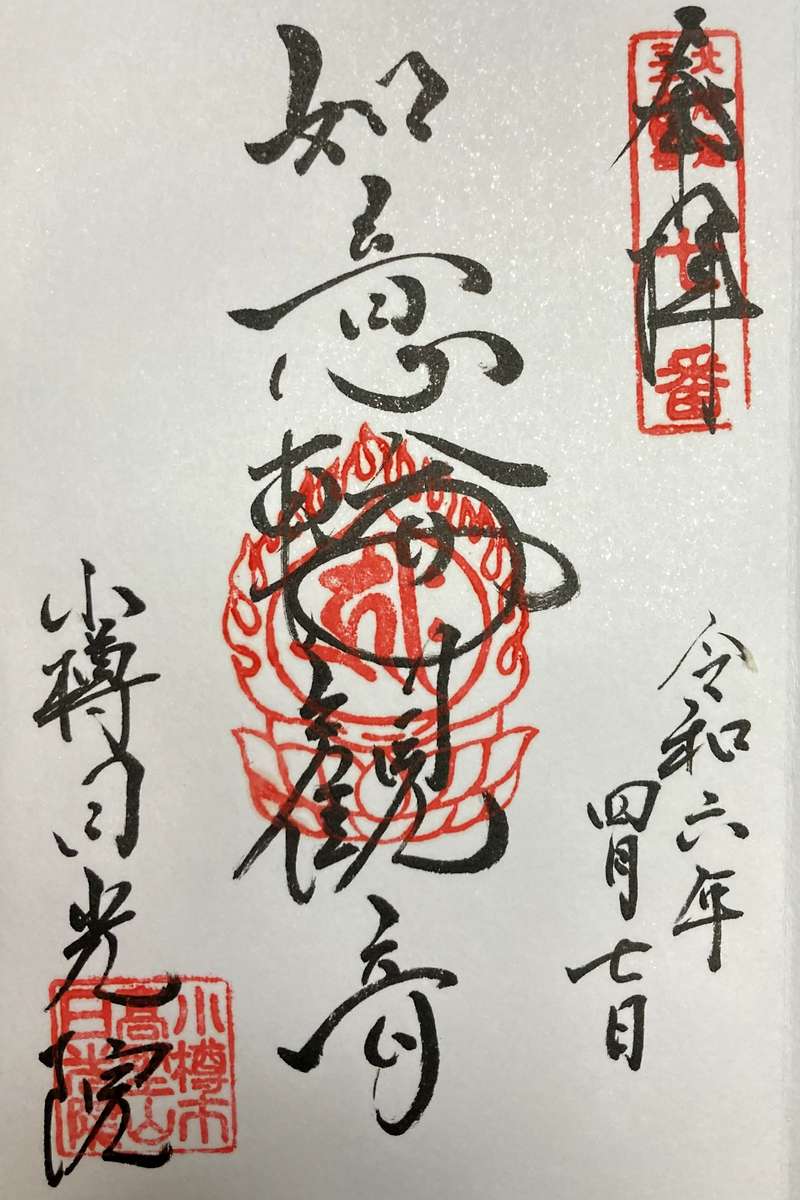 奉拝
七番
令和六年
四月七日
如意輪
観音
小樽日光院
小樽市
高野山
日光院